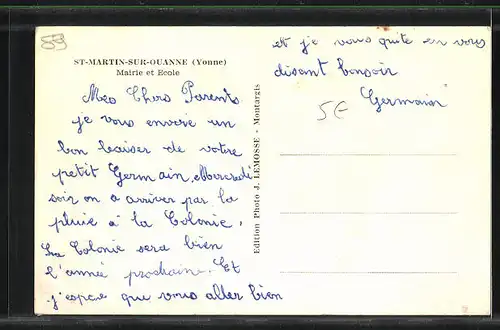 59
ST-MARTIN-SUR-OUANNE (Yonne)
Mairie et Ecole
Mes Chers Parents
je vous envoie un
bon baiser de votre
petit Germain, Mercredi
soir on a arriver par la
pluie à la Colonie,
La Colonie sera bien
l'année prochaine. Et
j'espère que vous aller bien
et je vous quite en vous
disant bonsoir
Germain
5€
Edition Photo J. LEMOSSE - Montargis